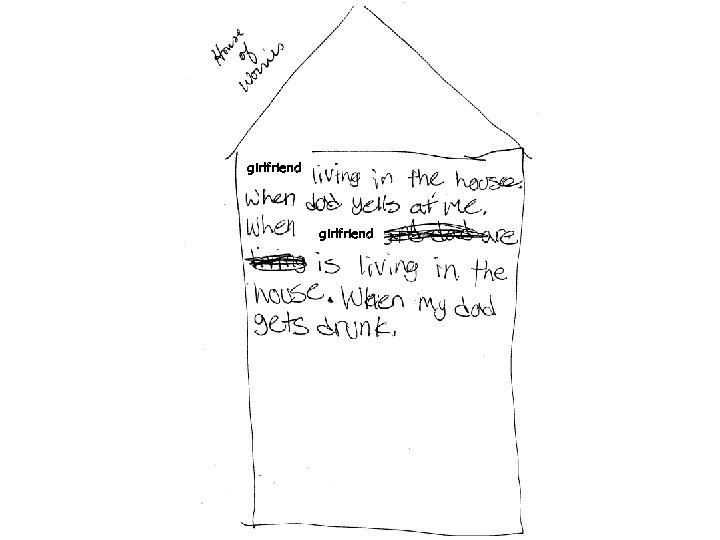 House
of
Worries
girlfriend living in the house.
When dad yells at me.
When girlfriend are
is living in the
house. When my dad
gets drunk.